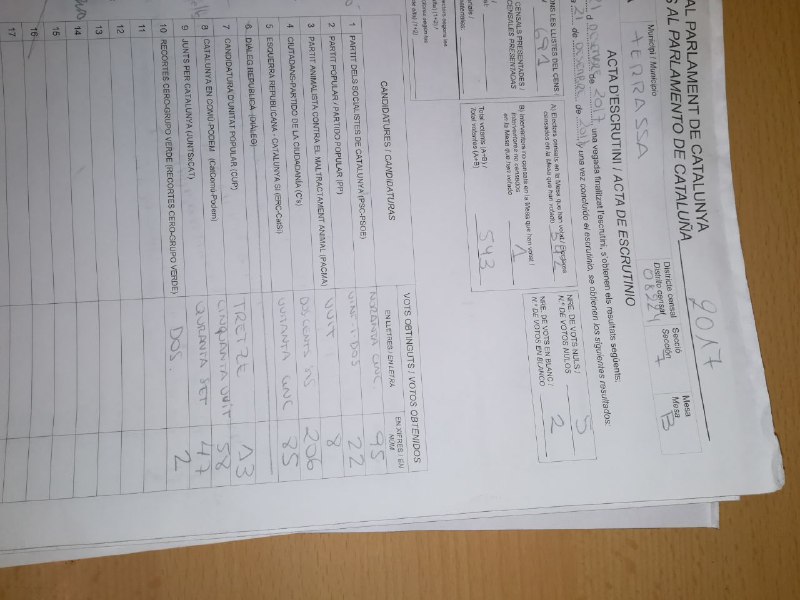 AL PARLAMENT DE CATALUNYA
S AL PARLAMENTO DE CATALUÑA
2017
TERRASSA
Municipi / Municipio
Districte censal
Distrito censal
08224
Secció
Sección
7
Mesa
Mesa
B
ACTA D'ESCRUTINI / ACTA DE ESCRUTINIO
21 de DESEMBRE de 2017, una vegada finalitzat l'escrutini, s'obtenen els resultats següents:
21 de DESEMBRE de 2017, una vez concluido el escrutinio, se obtienen los siguientes resultados:
ONS LES LLISTES DEL CENS
691
A) Electors censats en la Mesa que han votat / Electores
censados en la Mesa que han votado
542
NRE. DE VOTS NULS /
N.º DE VOTOS NULOS
5
CENSALS PRESENTADES /
CENSALES PRESENTADAS
B) Interventors no censats en la Mesa que han votat /
Interventores no censados
en la Mesa que han votado
1
NRE. DE VOTS EN BLANC /
N.º DE VOTOS EN BLANCO
2
Total votants (A+B) /
Total votantes (A+B)
543
CANDIDATURES / CANDIDATURAS
VOTS OBTINGUTS / VOTOS OBTENIDOS
EN LLETRES / EN LETRA
EN XIFRES / EN NÚM.
1 PARTIT DELS SOCIALISTES DE CATALUNYA (PSC-PSOE) NORANTA CINC 95
2 PARTIT POPULAR / PARTIDO POPULAR (PP) VINT-I-DOS 22
3 PARTIT ANIMALISTA CONTRA EL MALTRACTAMENT ANIMAL (PACMA) VUIT 8
4 CIUTADANS-PARTIDO DE LA CIUDADANÍA (C's) DOS-CENTS SIS 206
5 ESQUERRA REPUBLICANA - CATALUNYA SÍ (ERC-CatSí) VUITANTA CINC 85
6 DIÀLEG REPÚBLICA (DIÀLEG)
7 CANDIDATURA D'UNITAT POPULAR (CUP) TRETZE 13
8 CATALUNYA EN COMÚ-PODEM (CatComú-Podem) CINQUANTA VUIT 58
9 JUNTS PER CATALUNYA (JUNTSxCAT) QURANTA SET 47
10 RECORTES CERO-GRUPO VERDE (RECORTES CERO-GRUPO VERDE) DOS. 2
11
12
13
14
15
16
17